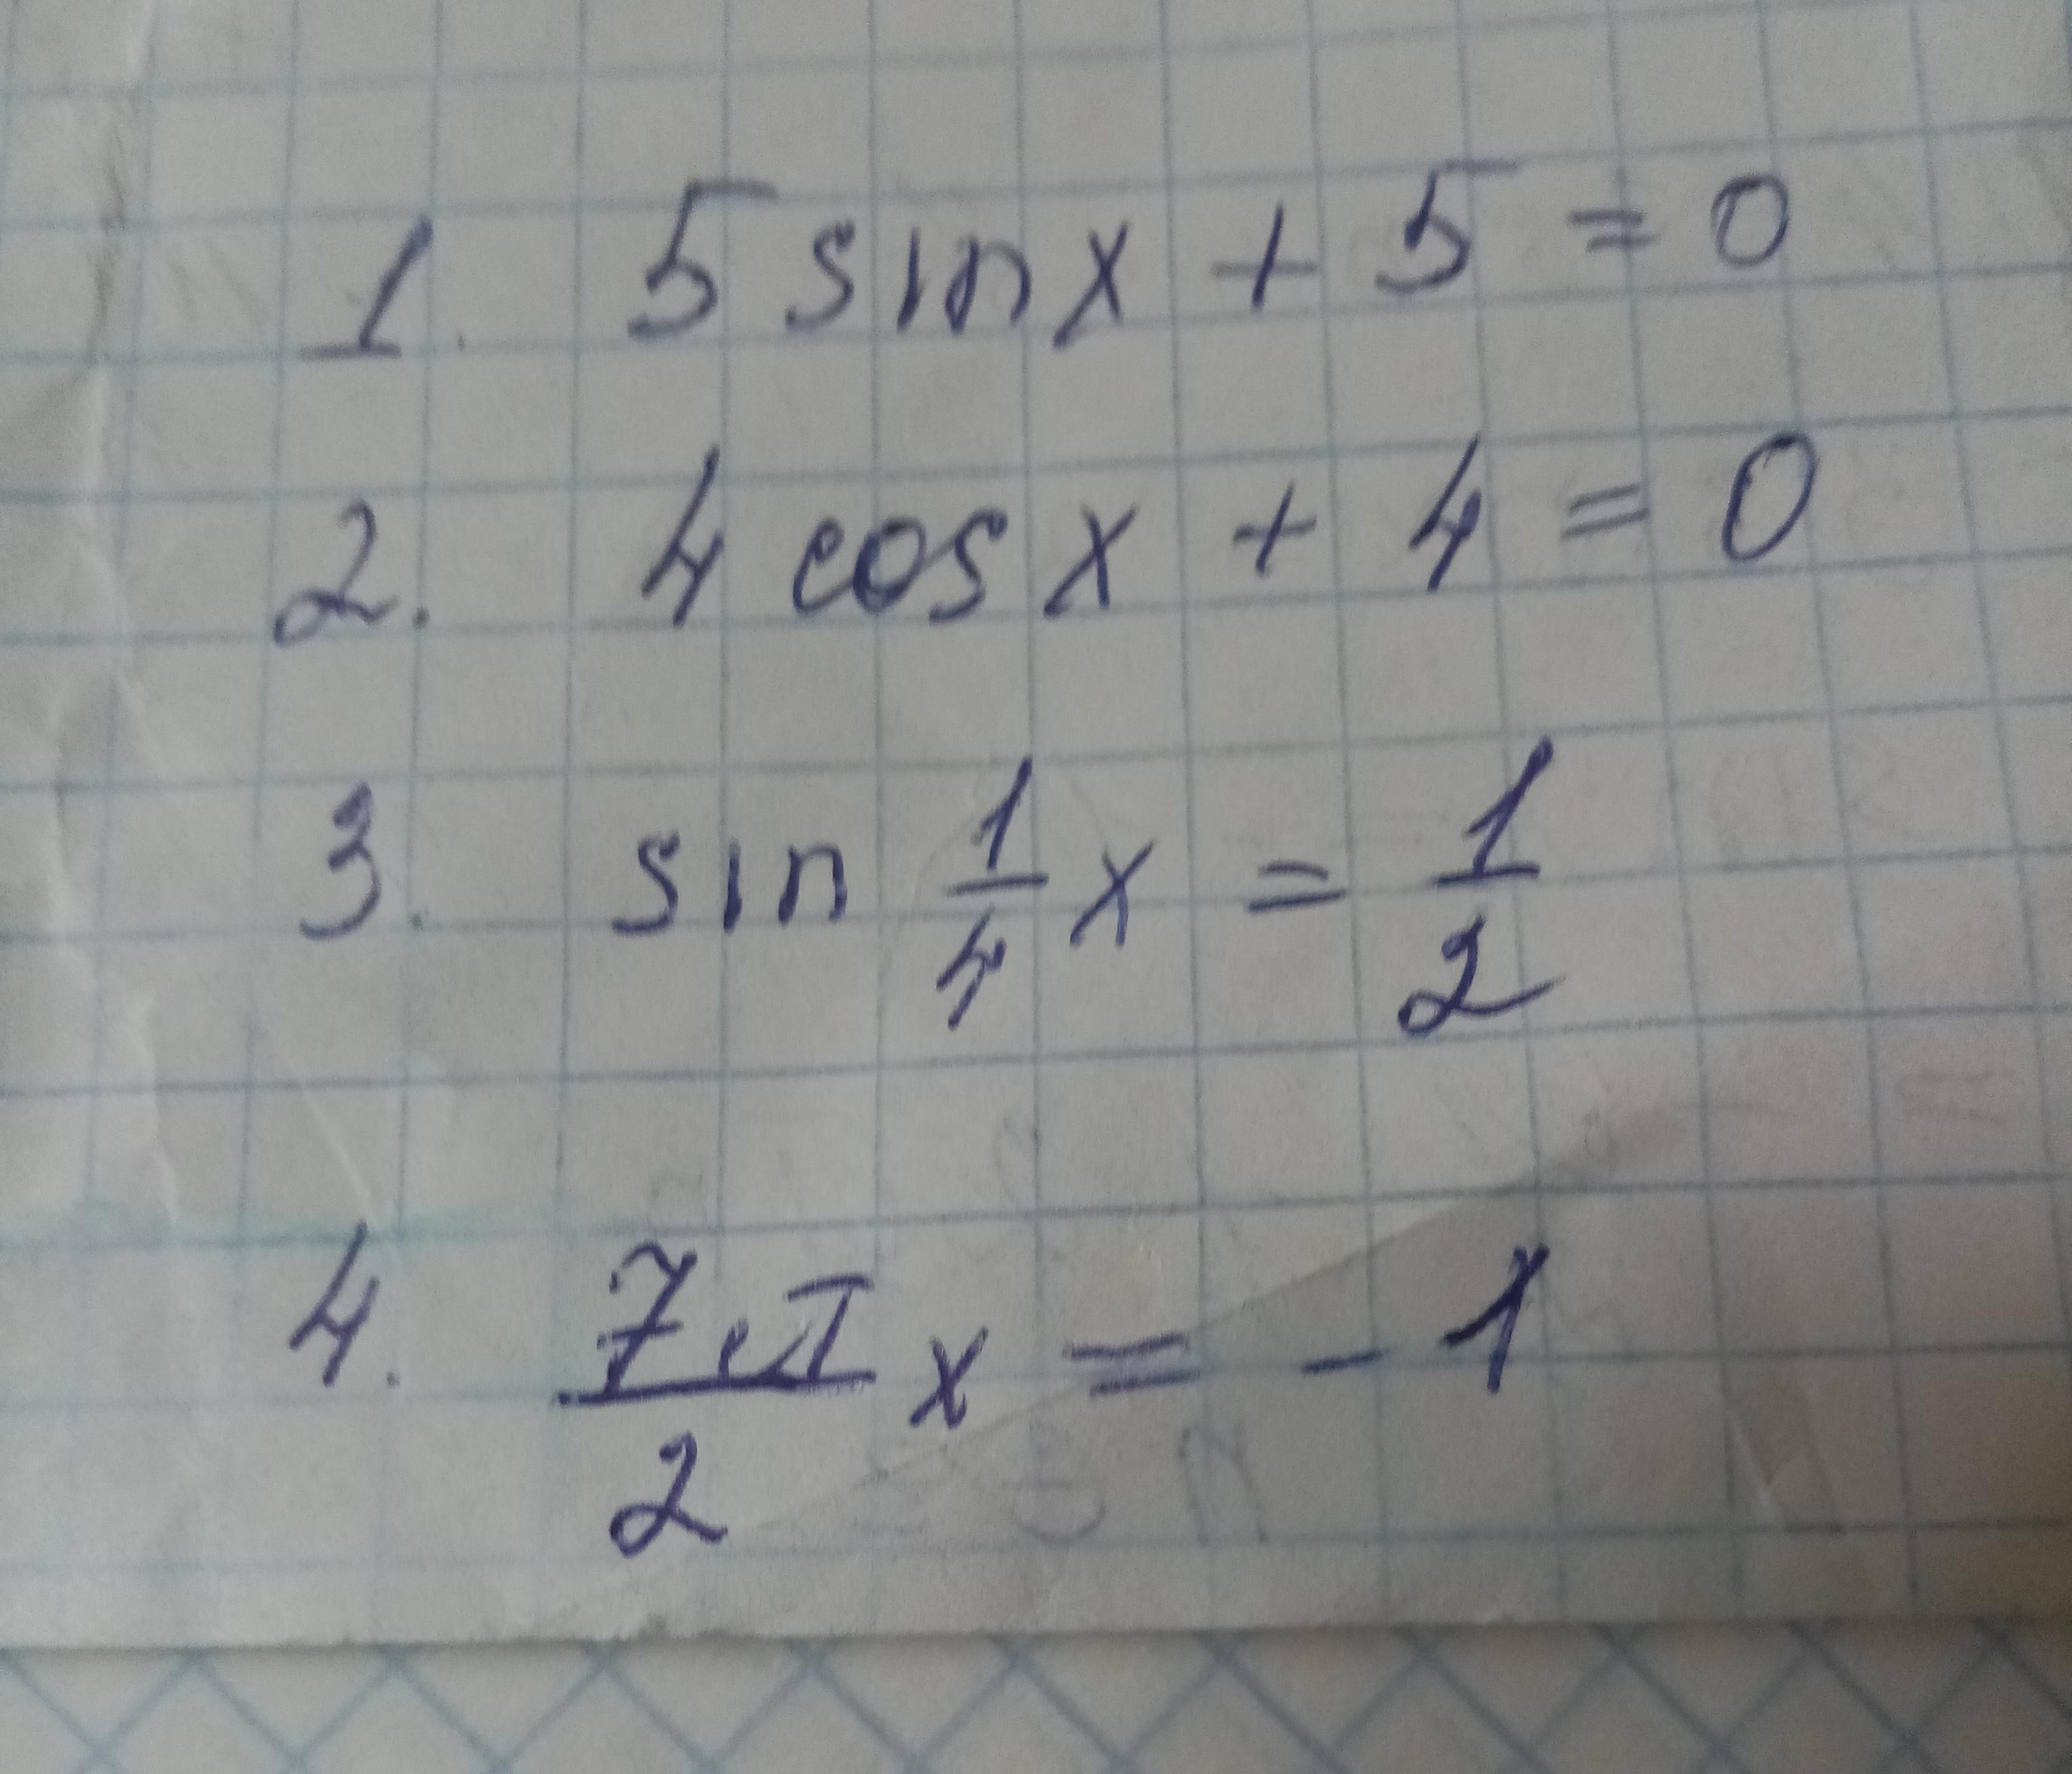 1. 5 sin x + 5 = 0
2. 4 cos x + 4 = 0
3. sin 1/4 x = 1/2
4. 7π/2 x = -1